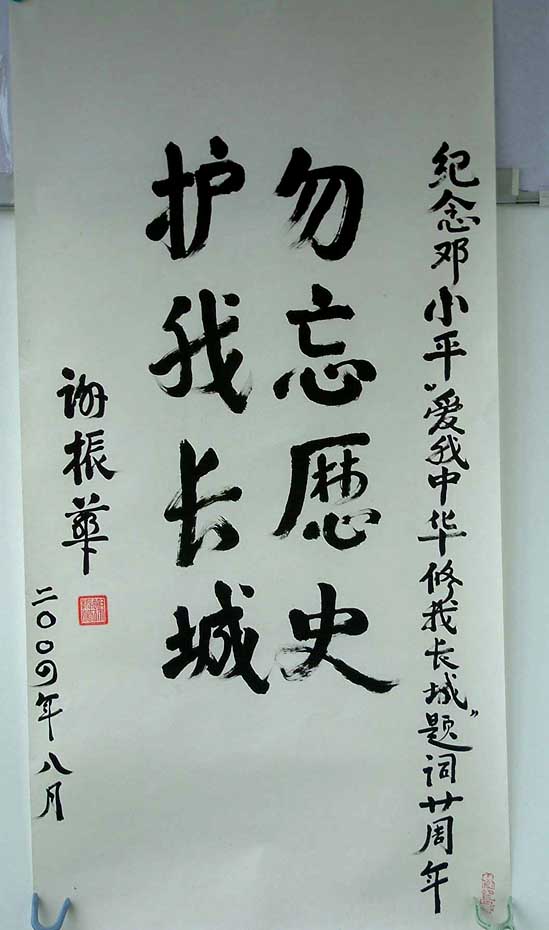 纪念邓小平"爱我中华修我长城"题词廿周年
勿忘歷史
护我长城
谢振华
二〇〇四年八月